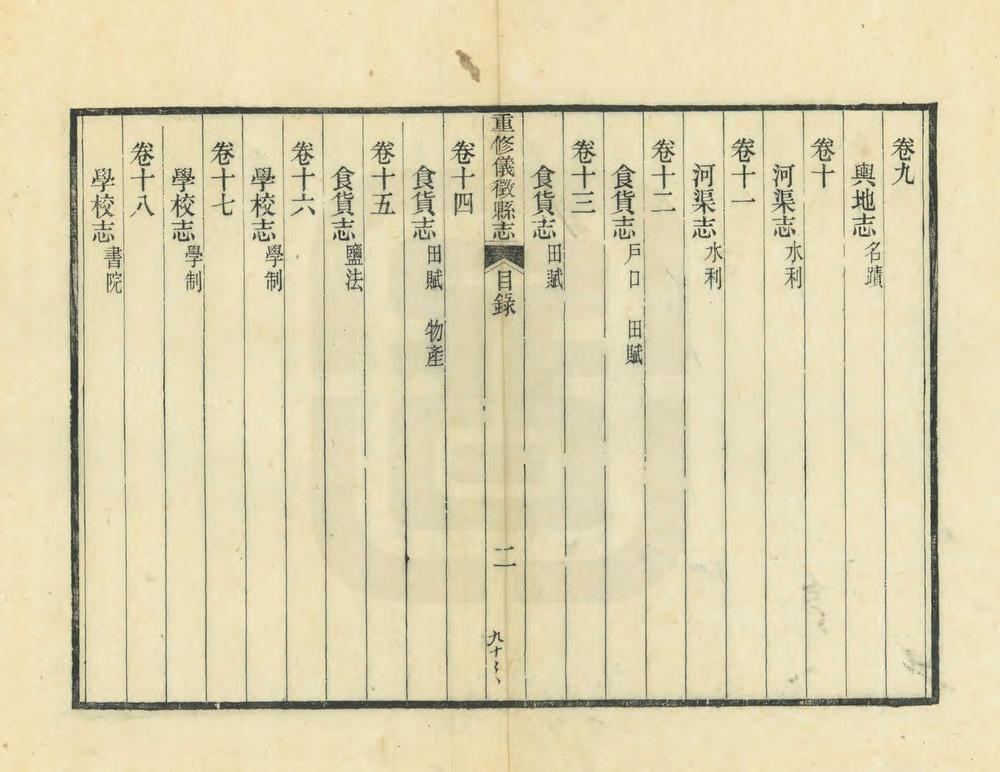 卷九
輿地志 名蹟
卷十
河渠志 水利
卷十一
河渠志 水利
卷十二
食貨志 戶口 田賦
卷十三
食貨志 田賦
重修儀徵縣志 目錄 二
卷十四
食貨志 田賦 物產
卷十五
食貨志 鹽法
卷十六
學校志 學制
卷十七
學校志 學制
卷十八
學校志 書院